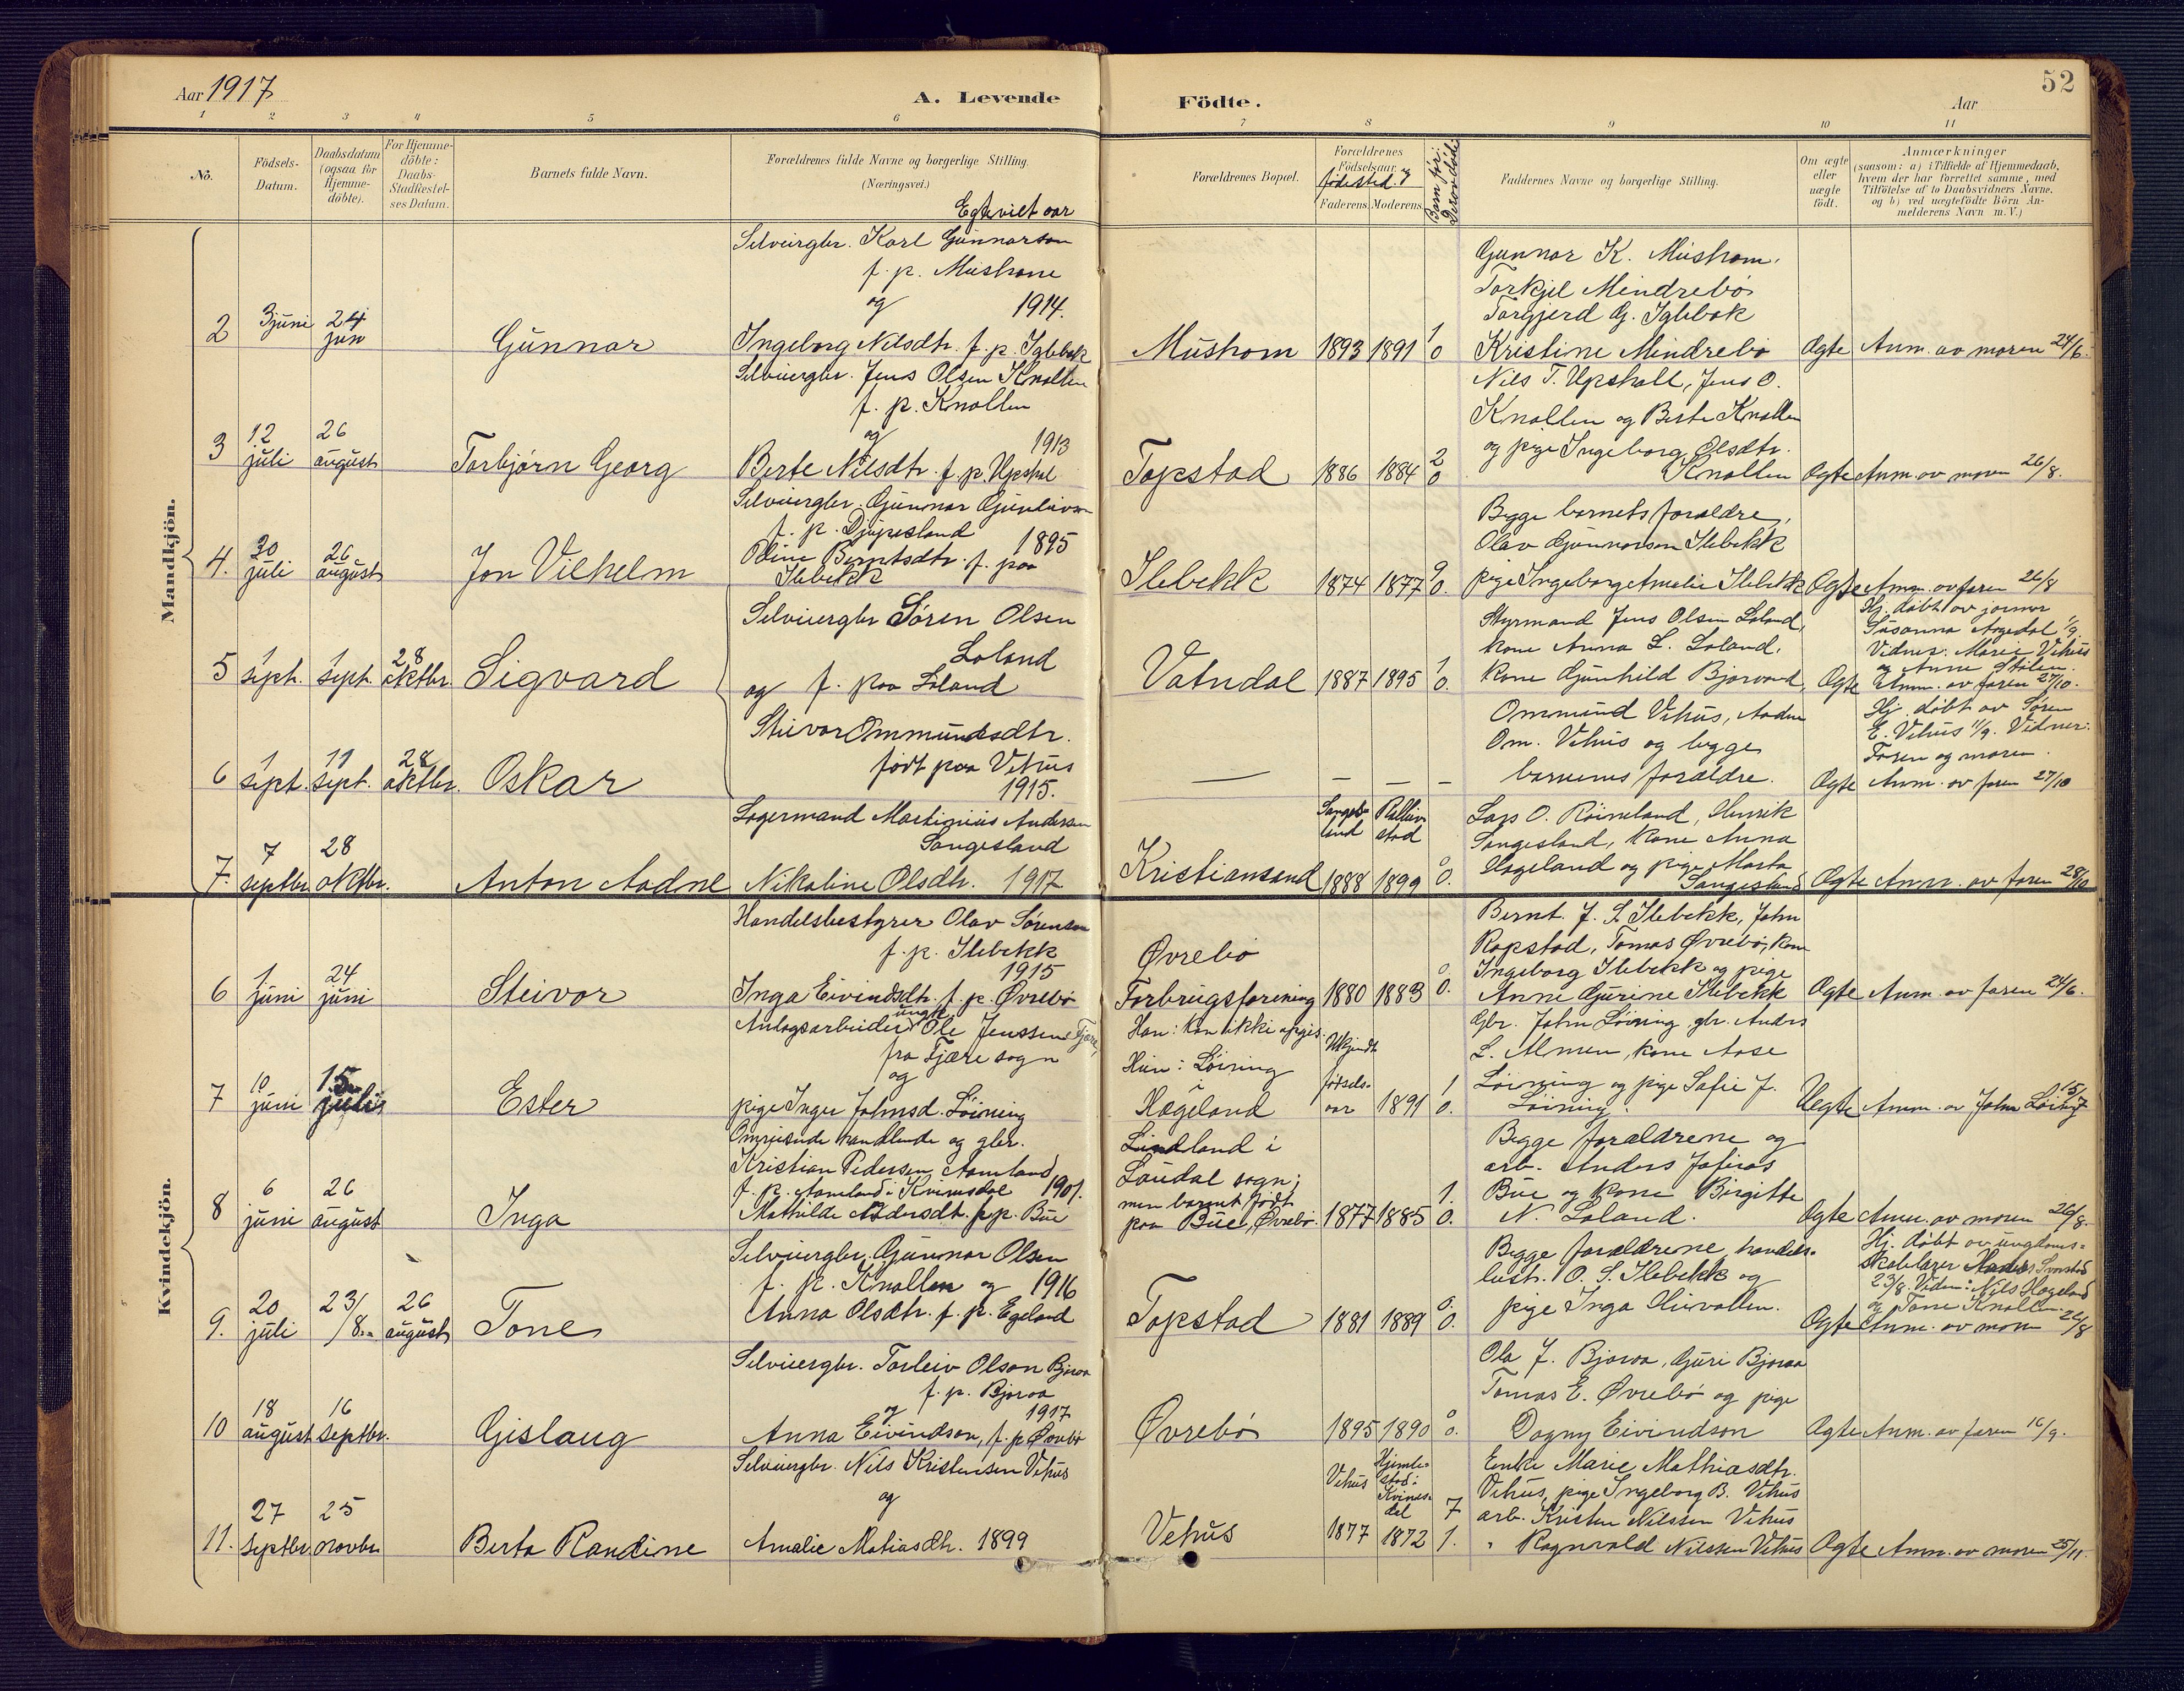 Aar 1917
A. Levende
Födte.
Aar
52
1 2 3 4 5 6 7 8 9 10 11
No.
Födsels-
Datum.
Daabsdatum
(ogsaa for
Hjemme-
döbte).
For Hjemme-
döbte:
Daabs-
Stadfæstel-
ses Datum.
Barnets fulde Navn.
Forældrenes fulde Navne og borgerlige Stilling.
(Næringsvei.)
Egtevielt aar
Forældrenes Bopæl.
Forældrenes
Födselsaar.
födested. og
Faderens. Moderens.
Barn før:
Derav døde:
Faddernes Navne og borgerlige Stilling.
Om ægte
eller
uægte
födt.
Anmærkninger
(saasom: a) i Tilfælde af Hjemmedaab,
hvem der har forrettet samme, med
Tilföielse af to Daabsvidners Navne.
og b) ved uægtefödte Börn An-
melderens Navn m. V.)
Mandkjön.
2
3 juni
24
jun
Gunnar
Selveiergbr. Karl Gunnarson
f. p. Mushom
og 1914.
Ingeborg Nilsdtr. f. p. Iglebæk
Mushom
1893 1891 1
0
Gunnar K. Mushom.
Torkjel Mindrebö
Torgjerd G. Iglebæk
Kristine Mindrebö
Ægte
Anm. av moren 24/6.
3
12
juli
26
august
Torbjørn Georg
Selveiergbr. Jens Olsen Knollen
f. p. Knollen
og 1913
Berte Nilsdtr. f. p. Upsal
Topstad
1886 1884 2
0
Nils T. Upshall, Jens O.
Knollen og Berte Knollen
og pige Ingeborg Olsdtr.
Knollen
Ægte
Anm. av moren 26/8.
4.
30
juli
26
august
Jon Vilhelm
Selveiergbr. Gunnar Gunleivsen
f. p. Djupesland
1895
Oline Berntsdtr. f. paa
Ilebekk
Ilebekk
1874 1877 9
0.
Begge barnets forældre,
Olav Gunnarson Ilebekk
pige Ingeborg Amalie Ilebekk
Ægte
Anm. av faren 26/8
5
1
sept.
1
sept.
28
oktbr.
Sigvard
Selveiergbr Søren Olsen
Loland
og f. paa Loland
Steivor Ommundsdtr.
født paa Vehus
1915.
Vatndal
1887 1895 1
0.
Styrmand Jens Olsen Loland,
kone Anna L. Loland,
kone Gunhild Bjorvand,
Ægte
Hj. døbt av jormor
Susanna Aagedal 1/9.
Vidner: Marie Vehus
og Anne Stölen.
Anm. av faren 27/10.
6
1
sept.
11
sept.
28
oktbr.
Oskar
— — — —
Ommund Vehus, Aadne
Om. Vehus og begge
barnets forældre.
Ægte
Hj. døbt av Søren
E. Vehus 11/9. Vidner:
Faren og moren.
Anm. av faren 27/10
7.
7
septbr
28
oktbr.
Anton Aadne
Lagermand Martinius Andersen
Sangesland
Nikoline Olsdtr. 1917
Kristiansand
1888 1899 0
0.
Lars O. Röineland, Henrik
Sangesland, kone Anna
Hægeland og pige Marta
Sangesland
Ægte
Anm. av faren 28/10
Kvindekjön.
6
1
juni
24
juni
Steivor
Handelsbestyrer Olav Sørensen
f. p. Ilebekk
1915
Inga Eivindsdtr. f. p. Øvrebö
Øvrebö
Forbrugsforening
1880 1883 0
0.
Bernt. J. S. Ilebekk, John
Rapstad, Tomas Øvrebö, kone
Ingeborg Ilebekk og pige
Anne Gurine Ilebekk
Ægte
Anm. av faren 24/6.
7
10
juni
15
juli
Ester
Anlagsarbeider ungk. Ole Jenssen Fjære,
fra Fjære sogn
og
pige Inger Johnsd. Löining
Han: kan ikke opgis.
Hun: Löining
i
Hægeland
Ukjendt
fødsels-
aar
1891 1
0.
Gbr. John Löining, gbr. Anders
L. Almen, kone Aase
Löining og pige Sofie J.
Löining.
Uegte
Anm. av John Löining 15/7
8
6
juni
26
august
Inga
Omreisende handlende og gbr.
Kristian Pedersen Aamland
f. p. Aamland i Kvinesdal 1901.
Mathilde Andersdt. f. p. Bue
Lindland i
Laudal sogn;
men barnet født
paa Bue, Øvrebö.
1877 1885 1.
0.
Begge forældrene og
arb. Anders Jofias
Bue og kone Birgitte
N. Loland.
Ægte
Anm. av moren 26/8.
9.
20
juli
23/8.
26
august
Tone
Selveiergbr. Gunnar Olsen
f. p. Knollen og 1916
Anna Olsdtr. f. p. Egeland
Topstad
1881 1889 0.
0.
Begge forældrene, handels-
bestr. O. S. Ilebekk og
pige Inga Hirvollen.
Ægte
Hj. døbt av ungdoms-
skolelærer
23/8. Vidn: Nils Hægeland
og Tone Knollen.
Anm. av moren 26/8
10
18
august
16
septbr.
Gislaug
Selveiergbr. Torleiv Olson Bjoraa
f. p. Bjoraa
og 1917
Anna Eivindson, f. p. Øvrebö
Øvrebö
1895 1890 0
0.
Ola J. Bjoraa, Guri Bjoraa
Tomas E. Øvrebö og pige
Dagny Eivindson
Ægte
Anm. av faren 16/9.
11.
27
septbr
25
novbr
Berta Randine
Selveiergbr. Nils Kristensen Vehus
og
Amalie Matiasdtr. 1899
Vehus
Vehus
1877
Hjemle-
stad:
Kvines-
dal
1872
7
1.
Enke Marie Mathiasdtr.
Vehus, pige Ingeborg B. Vehus
arb. Kristen Nilssen Vehus
" Ragnvald Nilssen Vehus
Ægte
Anm. av moren 25/11.